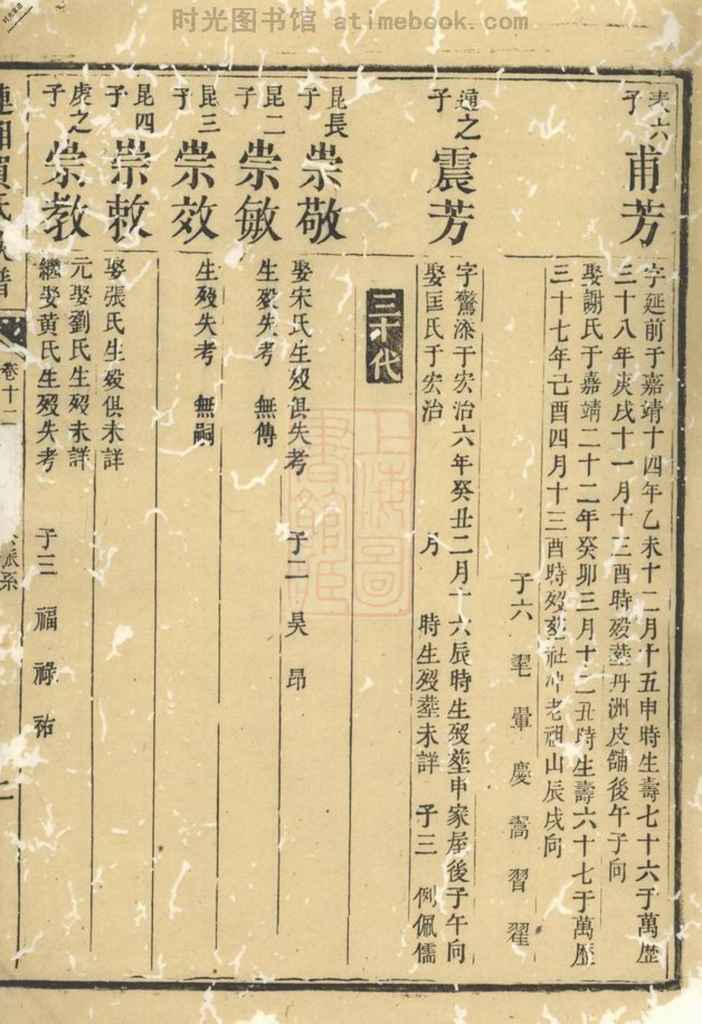 时光图书馆 atimebook.com
夫六子
甫芳
字延前于嘉靖十四年乙未十二月十五申時生壽七十六于萬歷
三十八年庚戌十一月十三酉時歿塟丹洲皮舖後午子向
娶謝氏于嘉靖二十二年癸卯三月十二丑時生壽六十七于萬歷
三十七年己酉四月十三酉時歿塟社冲老祖山辰戌向
子六 毛 暈 慶 嵩 習 翟
通之子
震芳
字驚滐于宏治六年癸丑二月十六辰時生歿塟申家屋後子午向
娶匡氏于宏治 月 時生歿塟未詳 子三 例佩儒
三十代
昆長子
崇敬
娶宋氏生歿俱失考 子二 昊 昂
昆二子
崇敏
生歿失考 無傳
昆三子
崇效
生歿失考 無嗣
昆四子
崇敕
娶張氏生歿俱未詳
虎之子
崇教
元娶劉氏生歿未詳
繼娶黃氏生歿失考 子三 福 祿 祐
卷十二
派系